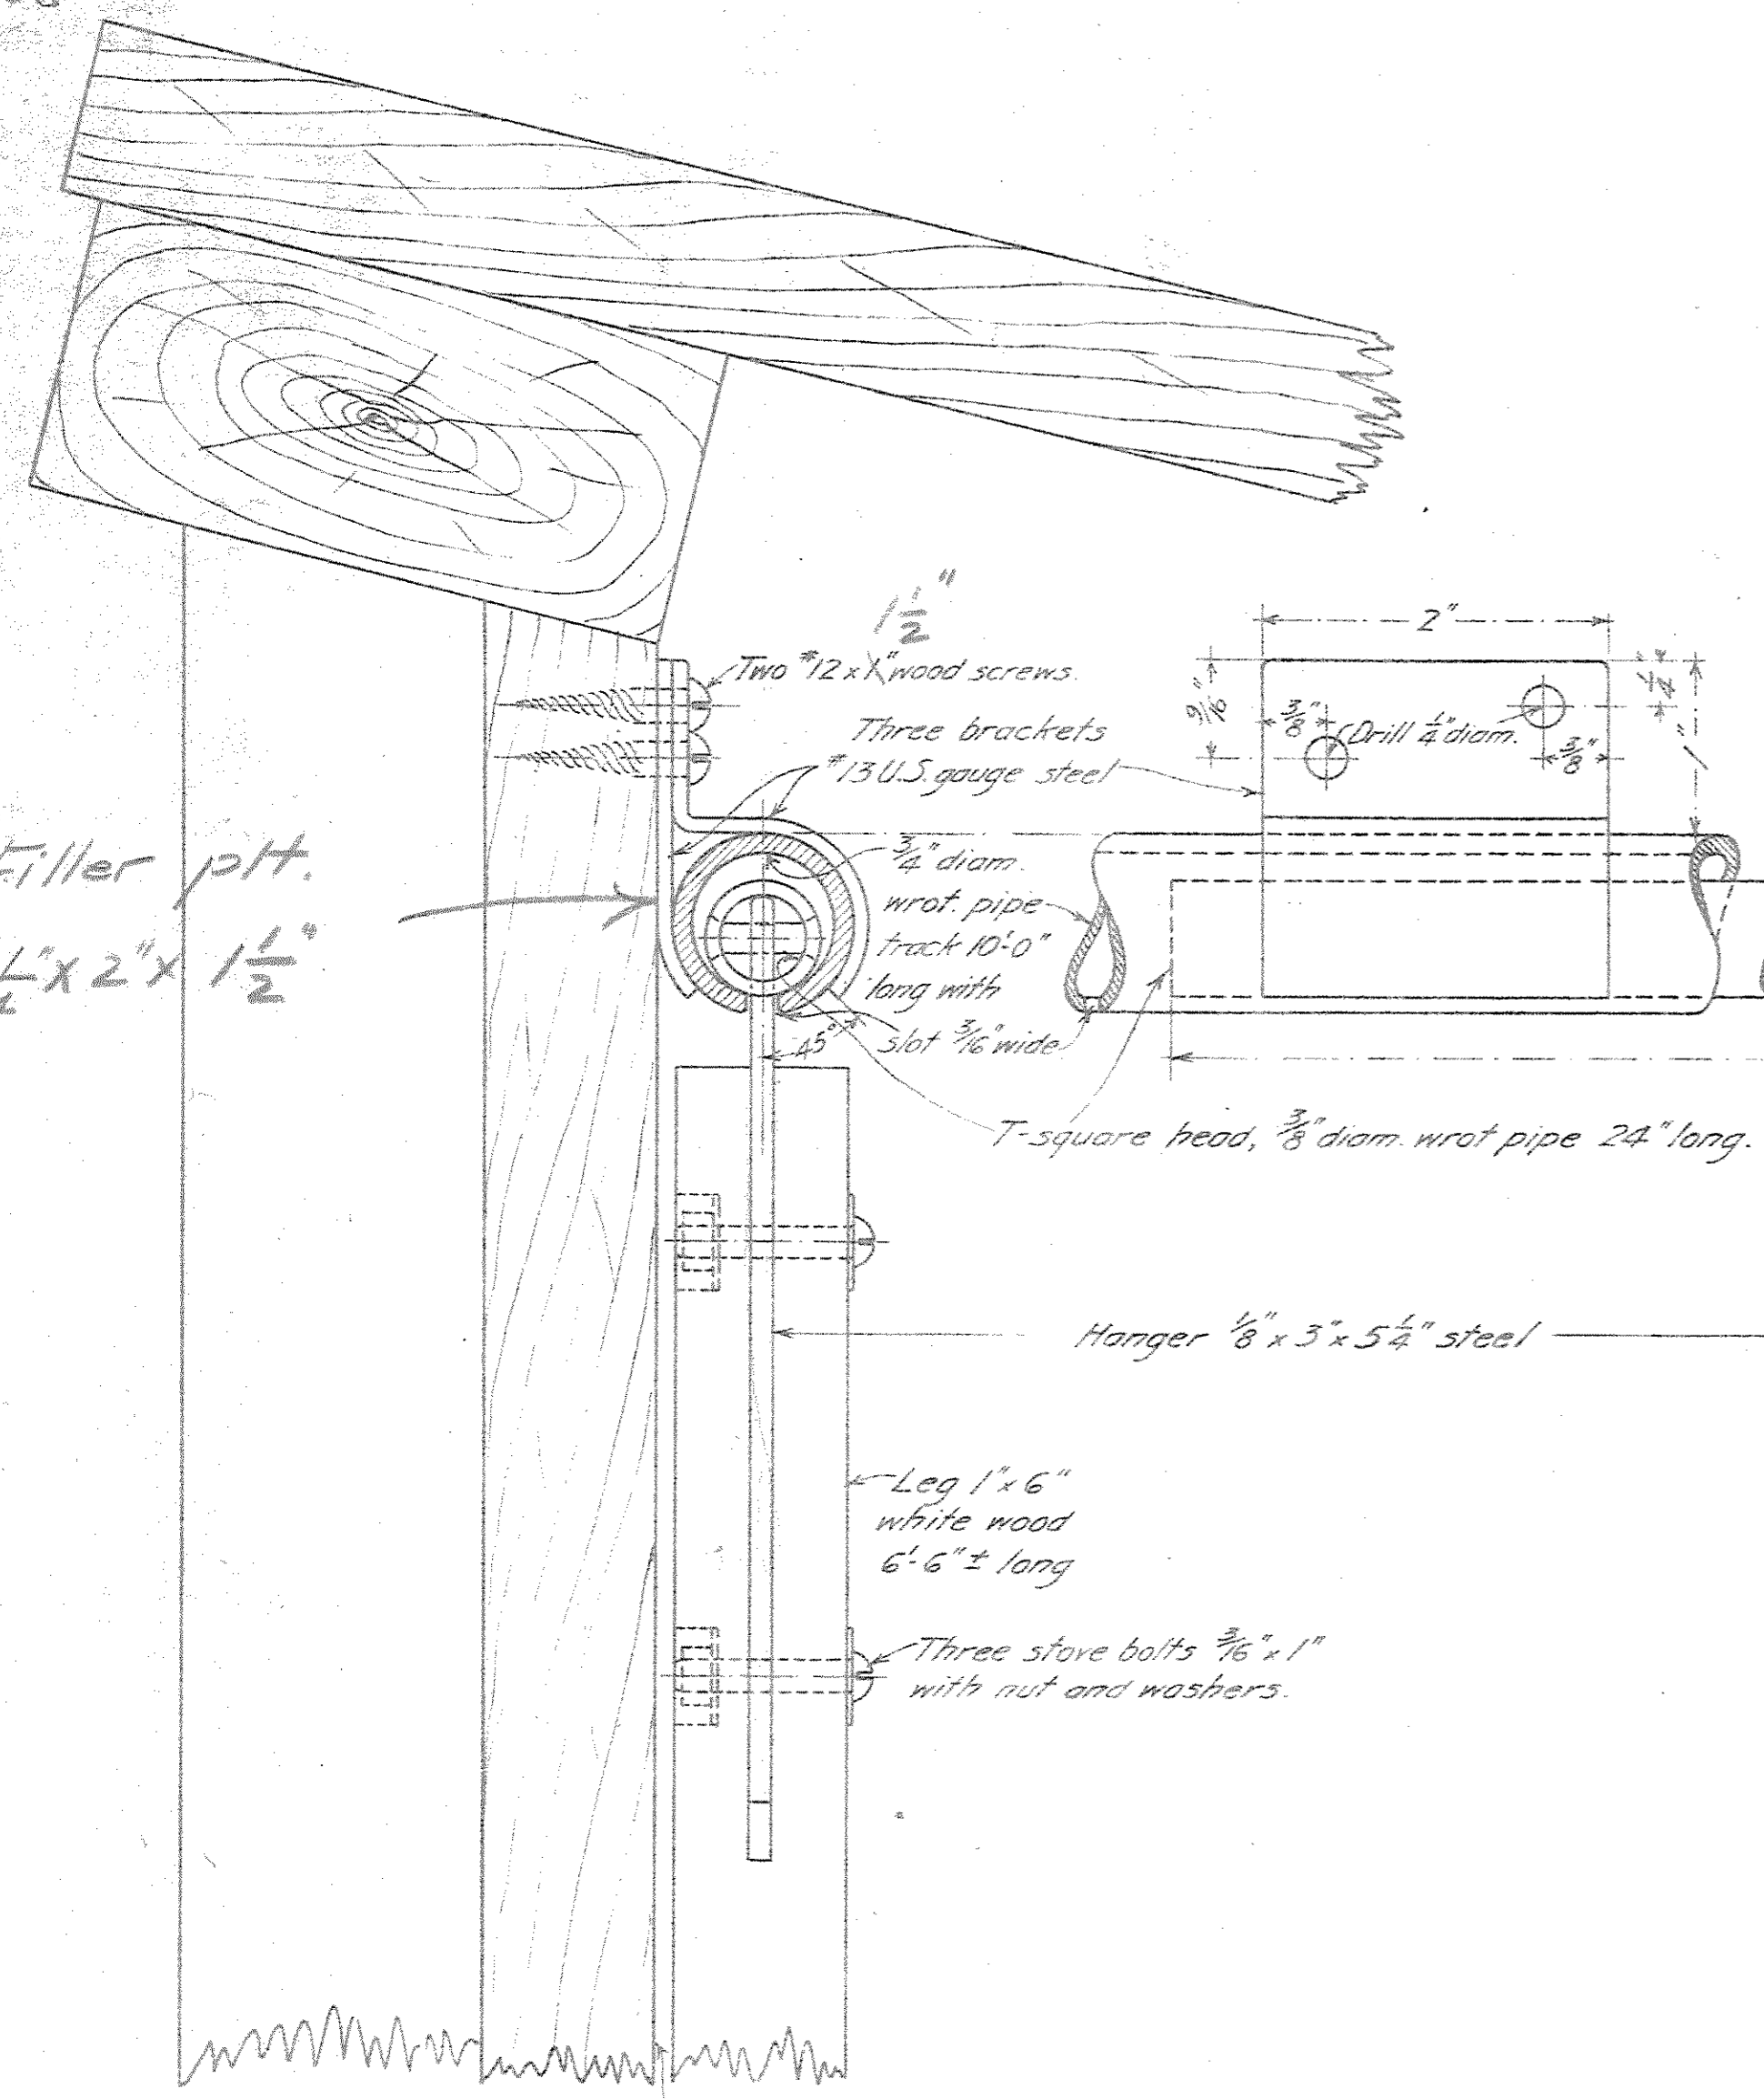 1 1/2"
Two #12 x 1" wood screws.
Three brackets
#13 U.S. gauge steel
3/4" diam.
wrot. pipe
track 10'-0"
long with
slot 3/16" wide
45°
2"
9/16"
3/8"
Drill 1/4" diam.
3/8"
1/4"
1"
Filler plt.
x 2" x 1 1/2"
T-square head, 3/8" diam. wrot pipe 24" long.
Hanger 1/8" x 3" x 5 1/4" steel
Leg 1" x 6"
white wood
6'-6" ± long
Three stove bolts 3/16" x 1"
with nut and washers.